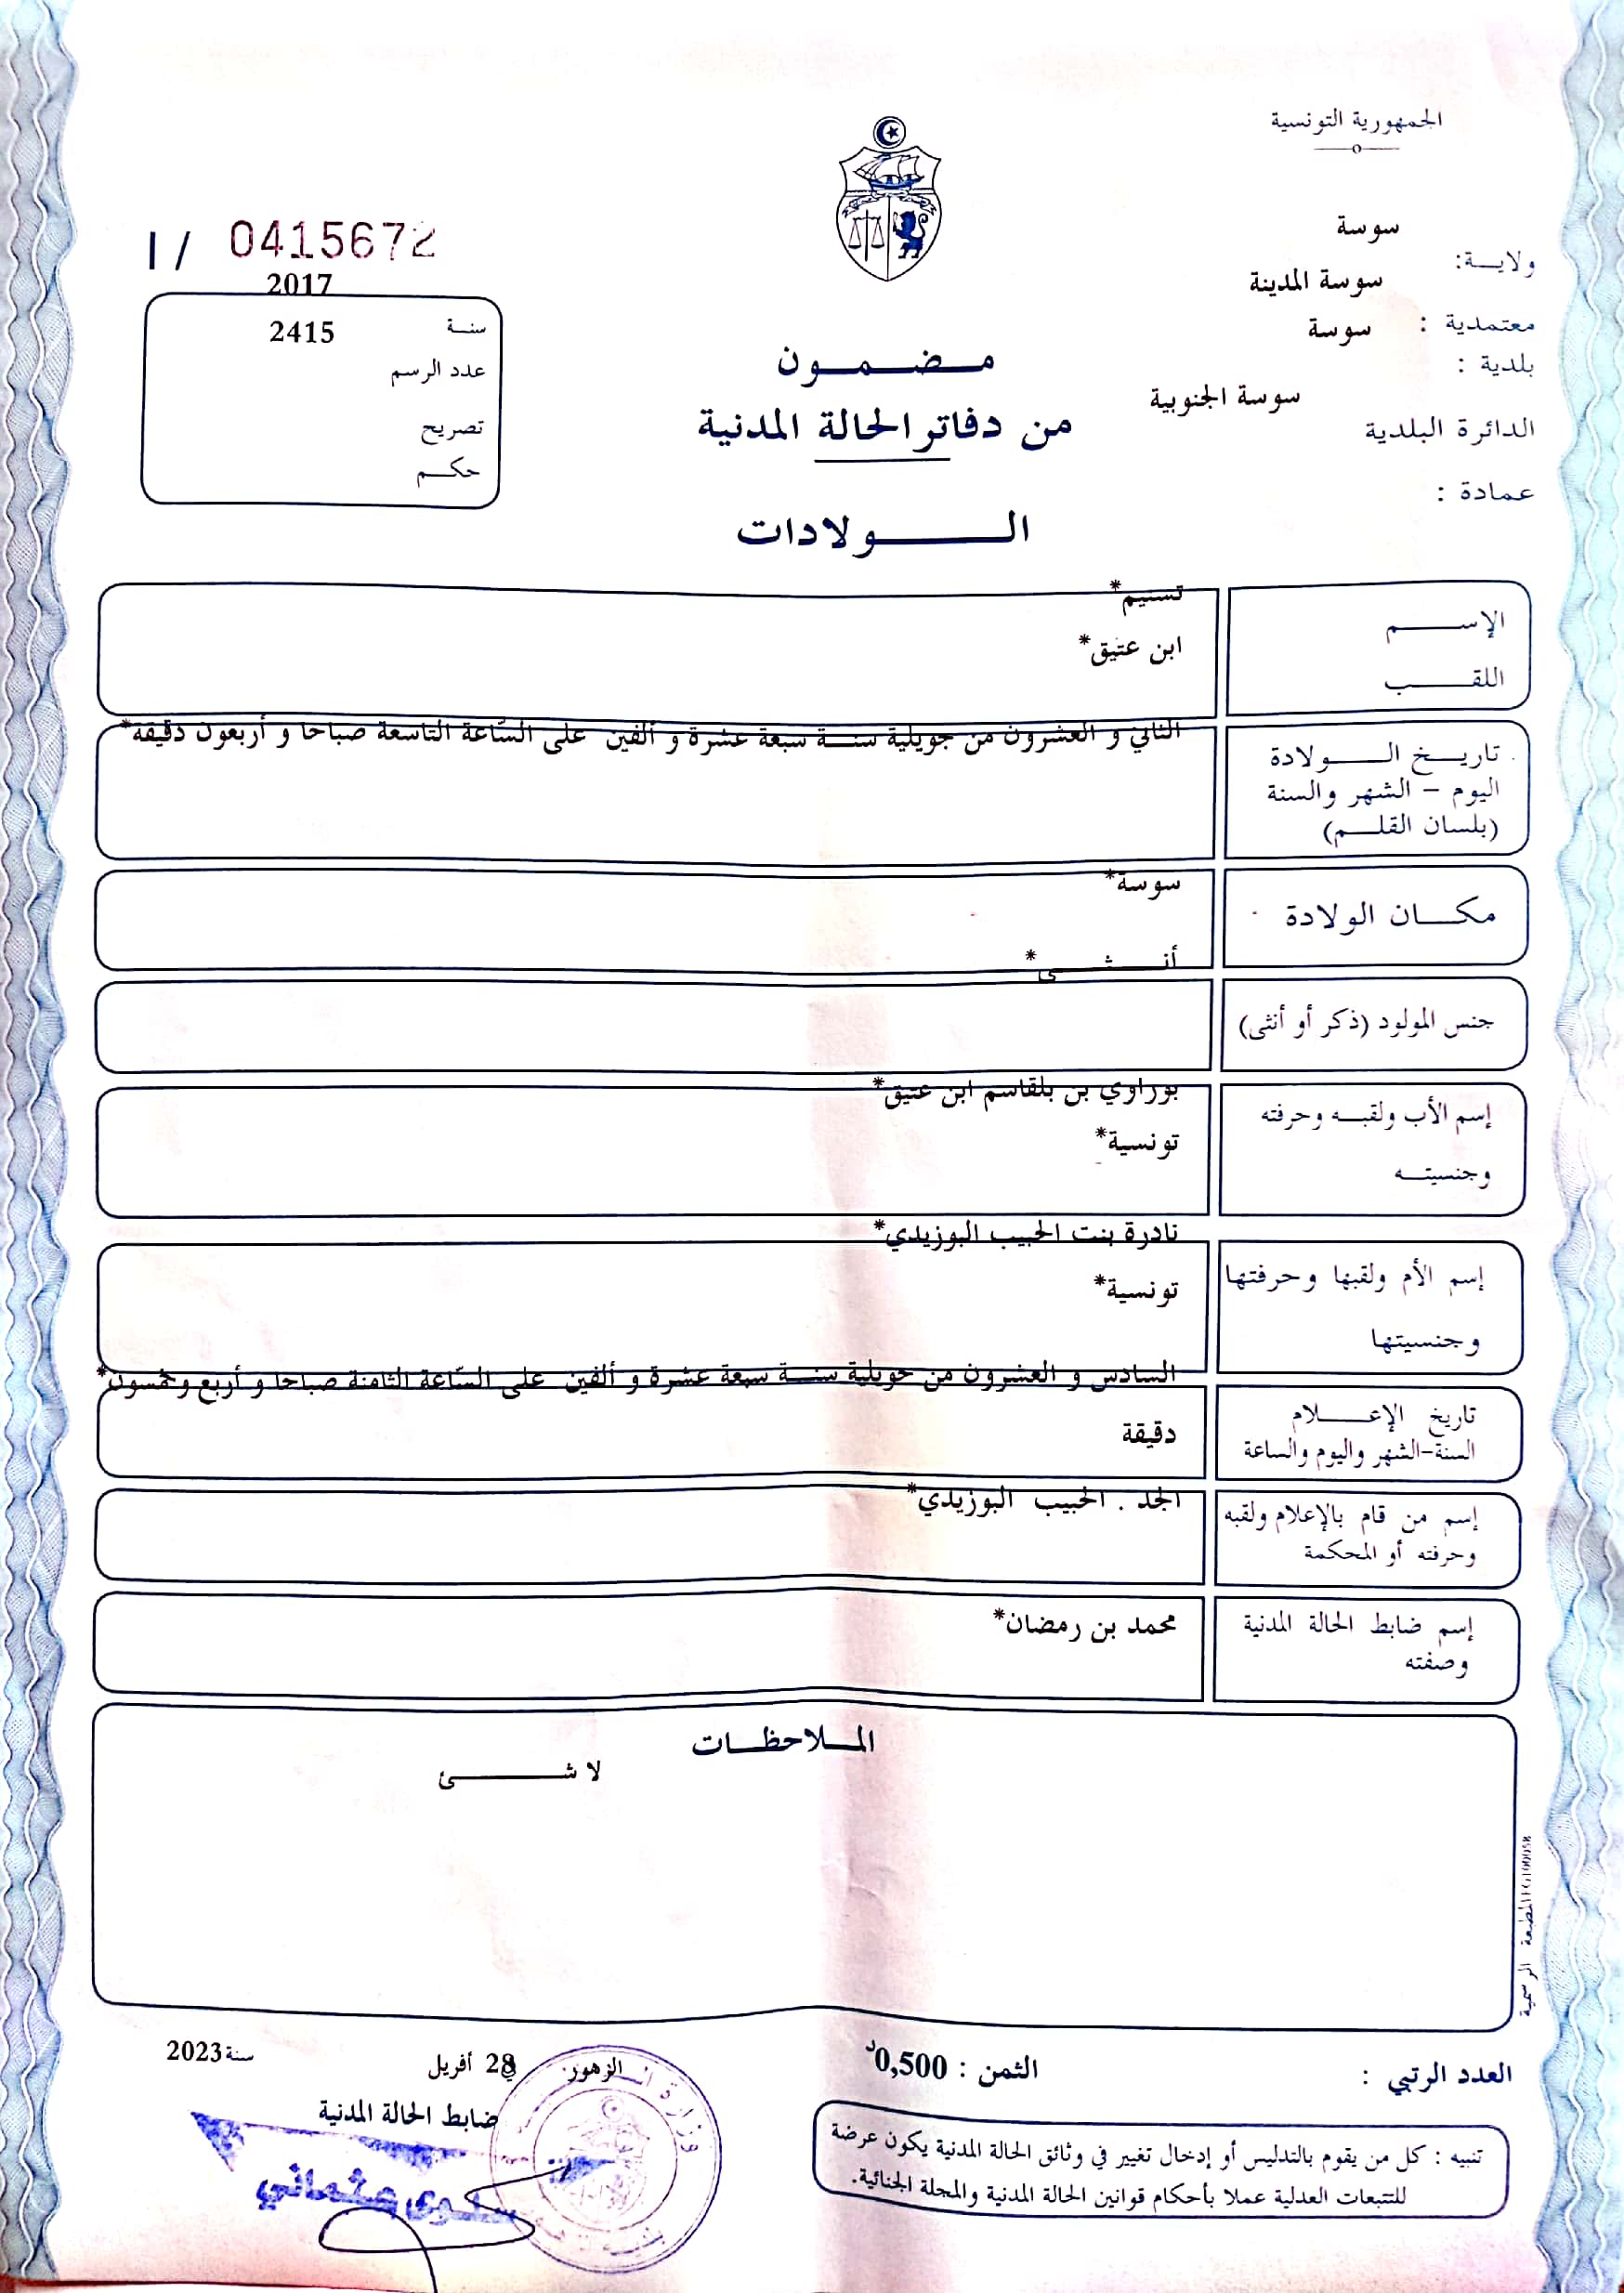 الجمهورية التونسية
سوسة
ولايـــة:
سوسة المدينة
معتمدية :
سوسة
بلدية :
سوسة الجنوبية
الدائرة البلدية
عمادة :
مـــضـــمـــون
من دفاتر الحالة المدنية
الـــــولادات
I / 0415672
2017
سنـــة
2415
عدد الرسم
تصريح
حكـــم
الإســــم
تسنيم*
اللقـــب
ابن عتيق*
تاريـــخ الـــــولادة
اليوم – الشهر والسنة
(بلسان القلـــم)
الثاني و العشرون من جويلية سنـــة سبعة عشرة و ألفين على السّاعة التاسعة صباحا و أربعون دقيقة*
مكـــان الولادة
سوسة*
أنـــثـــى*
جنس المولود (ذكر أو أنثى)
إسم الأب ولقبـــه وحرفته
وجنسيتـــه
بوراوي بن بلقاسم ابن عتيق*
تونسية*
إسم الأم ولقبها وحرفتها
وجنسيتها
نادرة بنت الحبيب البوزيدي*
تونسية*
تاريخ الإعـــــلام
السنة-الشهر واليوم والساعة
السادس و العشرون من جويلية سنـــة سبعة عشرة و ألفين على السّاعة الثامنة صباحا و أربع وخمسون*
دقيقة
إسم من قام بالإعلام ولقبه
وحرفته أو المحكمة
الجد . الحبيب البوزيدي*
إسم ضابط الحالة المدنية
وصفته
محمد بن رمضان*
المـــلاحظـــات
لا شـــــئ
المطبعة الرسمية
العدد الرتبي :
الثمن : 0,500د
الزهور
في 28 أفريل
سنة 2023
ضابط الحالة المدنية
سلوى عثماني
تنبيه : كل من يقوم بالتدليس أو إدخال تغيير في وثائق الحالة المدنية يكون عرضة
للتتبعات العدلية عملا بأحكام قوانين الحالة المدنية والمجلة الجنائية.